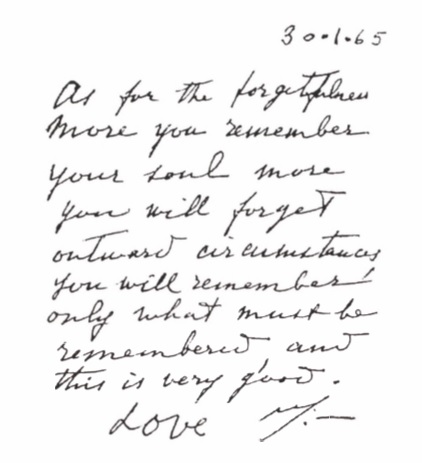 30.1.65
As for the forgetfulness
more you remember
your soul more
you will forget
outward circumstances
you will remember
only what must be
remembered, and
this is very good.
Love M.—